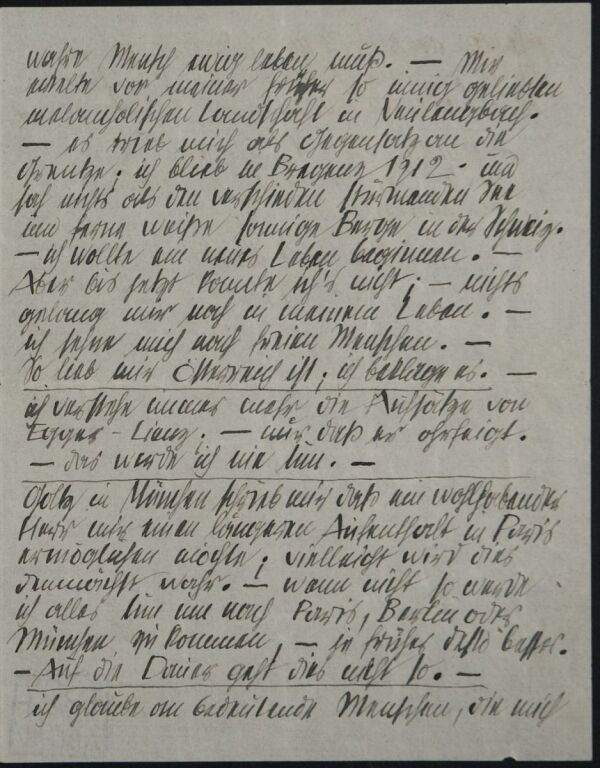 wahre Mensch ewig leben muß. — Mir
ekelte vor meiner früher so innig geliebten
melancholischen Landschaft in Neulengbach.
— es trieb mich als Gegensatz an die
Grenze; ich blieb in Bregenz 1912. und
sah nichts als den verschieden stürmenden See
und ferne weiße sonnige Berge in der Schweiz.
— ich wollte ein neues Leben beginnen. —
Aber bis jetzt konnte ich's nicht; — nichts
gelang mir noch in meinem Leben. —
ich sehne mich nach freien Menschen. —
So lieb mir Österreich ist; ich beklage es. —
ich verstehe immer mehr die Aufsätze von
Egger-Lienz. — nur daß er ohrfeigt.
— das werde ich nie tun. —
Goltz in München schrieb mir daß ein wohlhabender
Herr mir einen längeren Aufenthalt in Paris
ermöglichen möchte; vielleicht wird dies
demnächst wahr. — wenn nicht so werde
ich alles tun um nach Paris, Berlin oder
München zu kommen, — je früher desto besser.
— Auf die Dauer geht dies nicht so. —
ich glaube an bedeutende Menschen, die mich